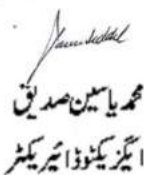 محمد یاسین صدیق
ایگزیکٹو ڈائریکٹر